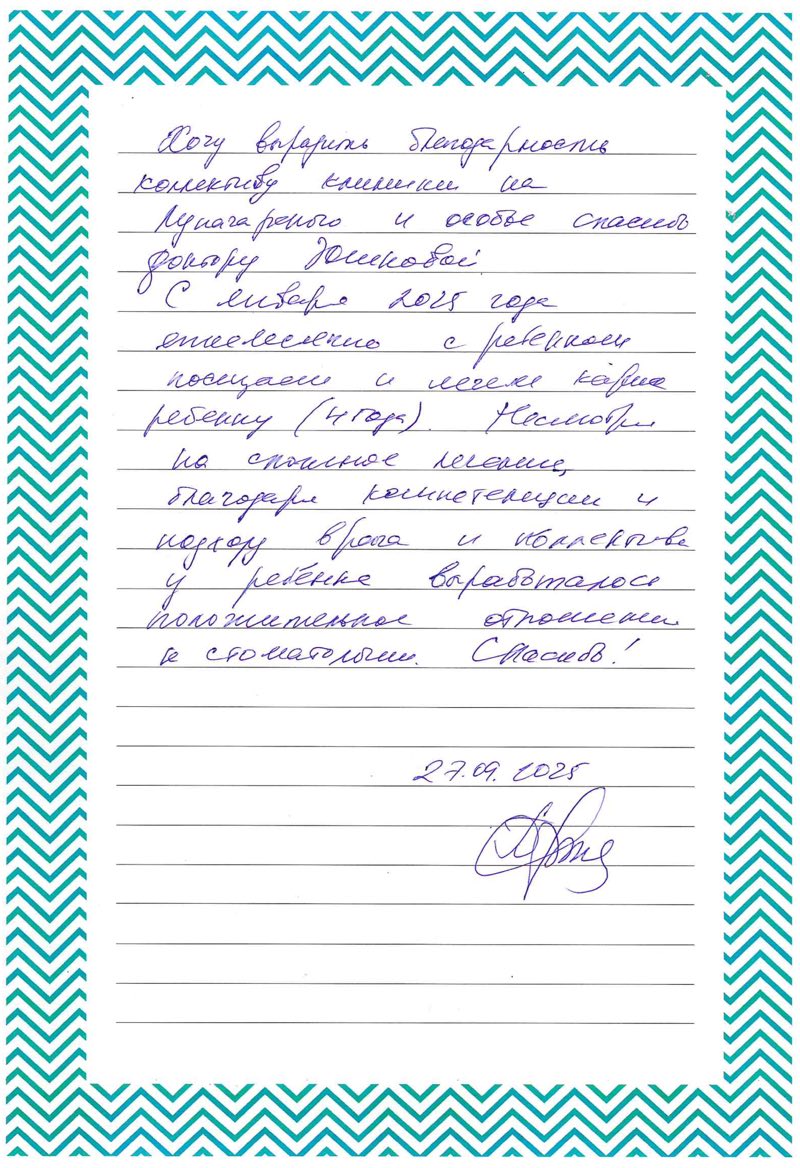 Хочу выразить благодарность
коллективу клиники на
Луначарского и особое спасибо
доктору Юшковой
С января 2025 года
ежемесячно с ребенком
посещаем и лечим кариес
ребенку (4 года). Несмотря
на сложное лечение,
благодаря компетенции и
подходу врача и коллектива
у ребенка выработалось
положительное отношение
к стоматологии. Спасибо!
27.09.2025